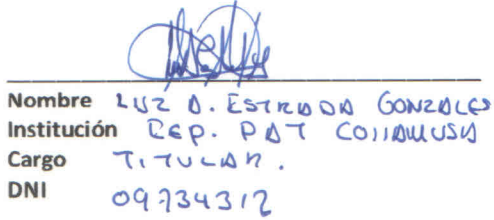 Nombre LUZ A. ESTRADA GONZALES
Institución REP. PAT COLLAHUSA
Cargo TITULAR.
DNI 09734312